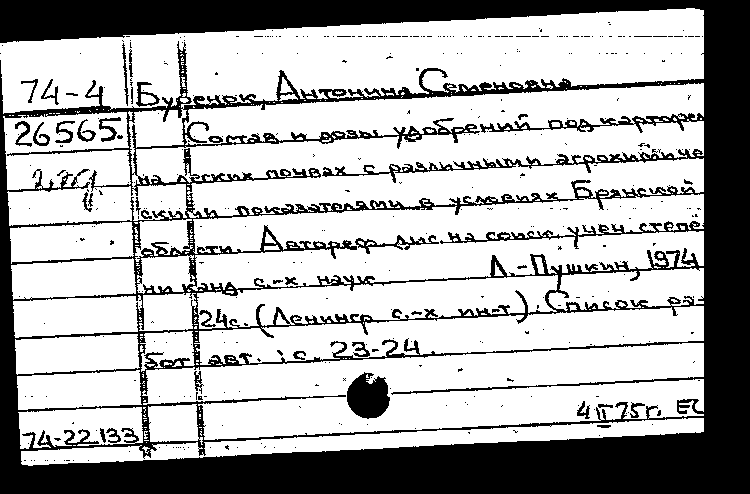 74-4 Буренок, Антонина Семеновна
26565. Состав и дозы удобрений под картофел
на легких почвах с различными агрохимиче
скими показателями в условиях Брянской
области. Автореф. дис. на соиск. учен. степе
ни канд. с.-х. наук Л.-Пушкин, 1974
24с. (Ленингр с.-х. ин-т). Список ра-
бот авт.: с. 23-24.
4 II 75г.
74-22133